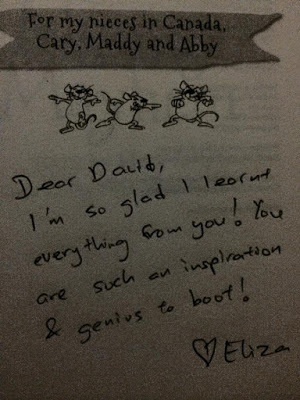 For my nieces in Canada,
Cary, Maddy and Abby
Dear David,
I'm so glad I learnt
everything from you! You
are such an inspiration
& genius to boot!
♡ Eliza